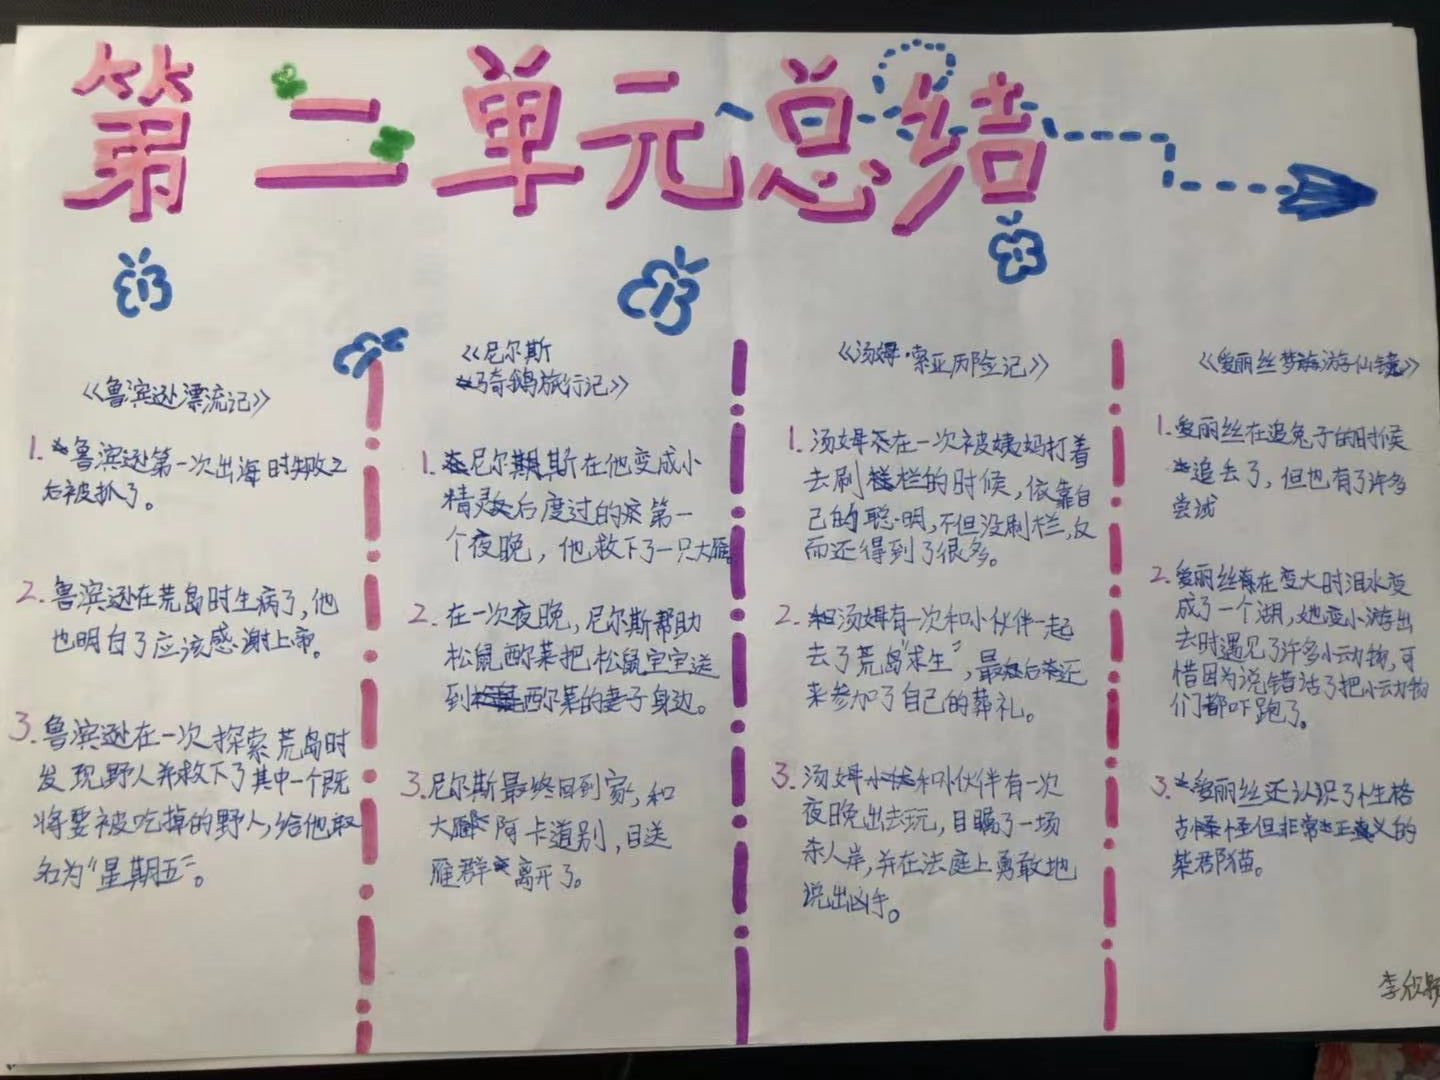 第二单元总结
《鲁滨逊漂流记》
1.鲁滨逊第一次出海时失败之
后被抓了。
2.鲁滨逊在荒岛时生病了,他
也明白了应该感谢上帝。
3.鲁滨逊在一次探索荒岛时
发现野人并救下了其中一个既
将要被吃掉的野人,给他取
名为“星期五”。
《尼尔斯
骑鹅旅行记》
1.尼尔斯在他变成小
精灵后度过的第一
个夜晚,他救下了一只大雁。
2.在一次夜晚,尼尔斯帮助
松鼠西尔莱把松鼠宝宝送
到西尔莱的妻子身边。
3.尼尔斯最终回到家,和
大雁阿卡道别,目送
雁群离开了。
《汤姆·索亚历险记》
1.汤姆在一次被姨妈打着
去刷栏的时候,依靠自
己的聪明,不但没刷栏,反
而还得到了很多。
2.汤姆有一次和小伙伴一起
去了荒岛“求生”,最后还
来参加了自己的葬礼。
3.汤姆和小伙伴有一次
夜晚出去玩,目睹了一场
杀人岸,并在法庭上勇敢地
说出凶手。
《爱丽丝梦游仙镜》
1.爱丽丝在追兔子的时候
追丢了,但也有了许多
尝试
2.爱丽丝在变大时泪水变
成了一个湖,她变小游出
去时遇见了许多小动物,可
惜因为说错话了把小动物
们都吓跑了。
3.爱丽丝还认识了个性格
古怪但非常正义的
柴郡猫。
李欣